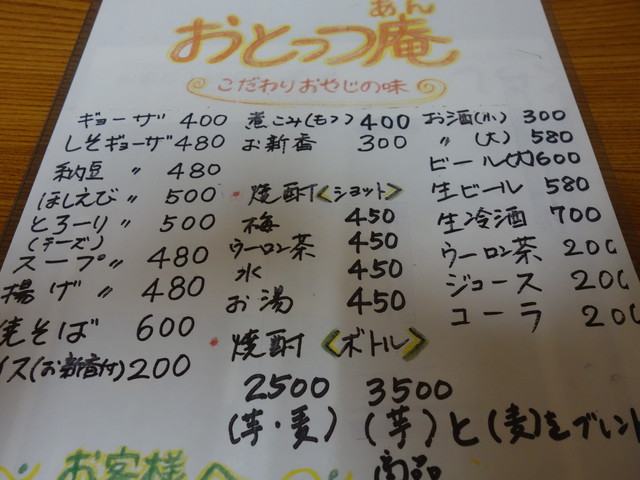 あん
おとっつ庵
こだわりおやじの味
ギョーザ 400
しそギョーザ 480
納豆 〃 480
ほしえび 〃 500
とろーり 〃 500
(チーズ)
スープ 〃 480
揚げ 〃 480
焼そば 600
イス(お新香付) 200
煮こみ(もつ) 400
お新香 300
・焼酎<ショット>
梅 450
ウーロン茶 450
水 450
お湯 450
・焼酎<ボトル>
2500 3500
(芋・麦) (芋)と(麦)をブレント
お酒(小) 300
〃 (大) 580
ビール(大) 600
生ビール 580
生冷酒 700
ウーロン茶 200
ジュース 200
コーラ 200
お客様へ
商品